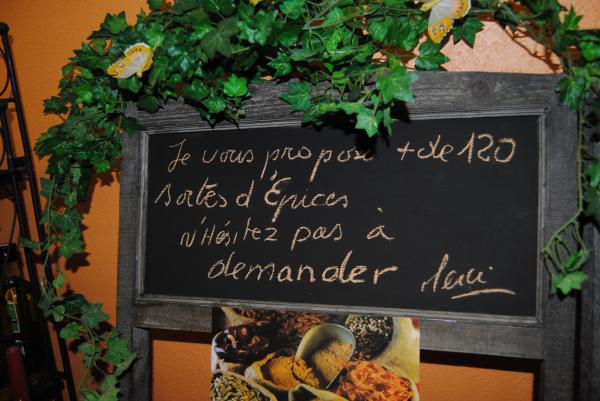 Je vous propose + de 120
sortes d'Épices
N'Hésitez pas à
demander Merci